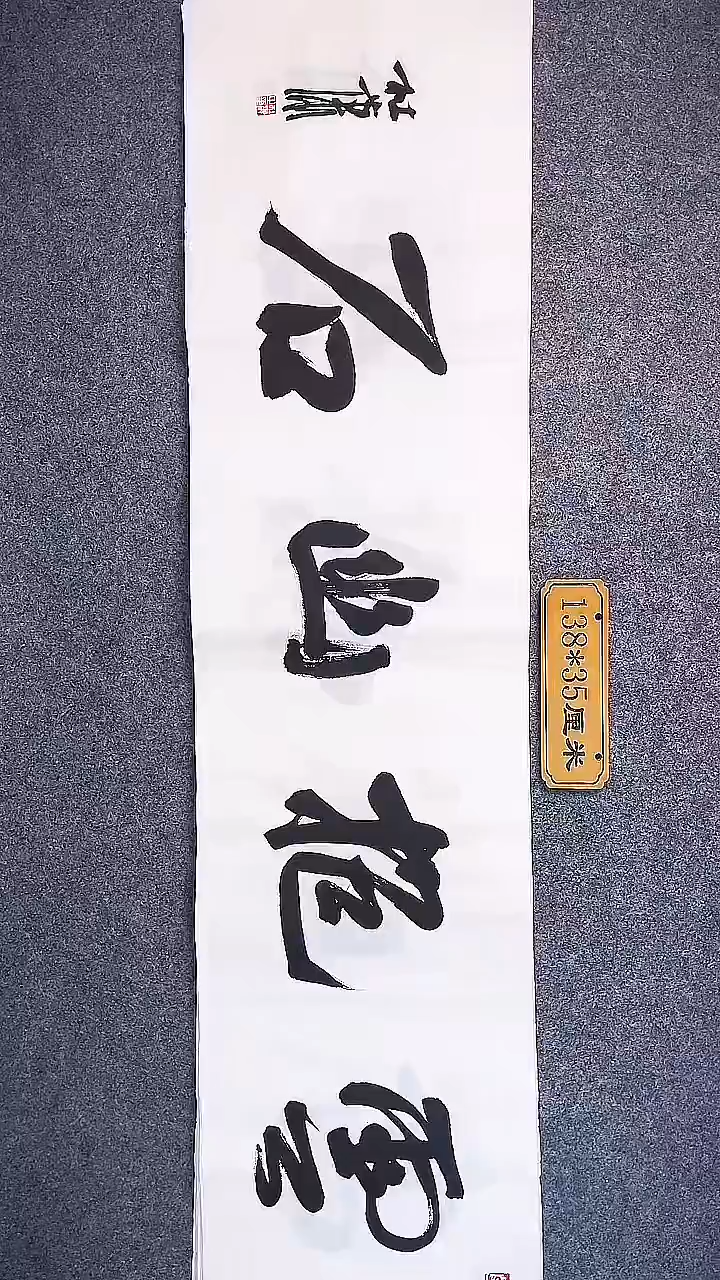 雲抱幽石
138*35厘米